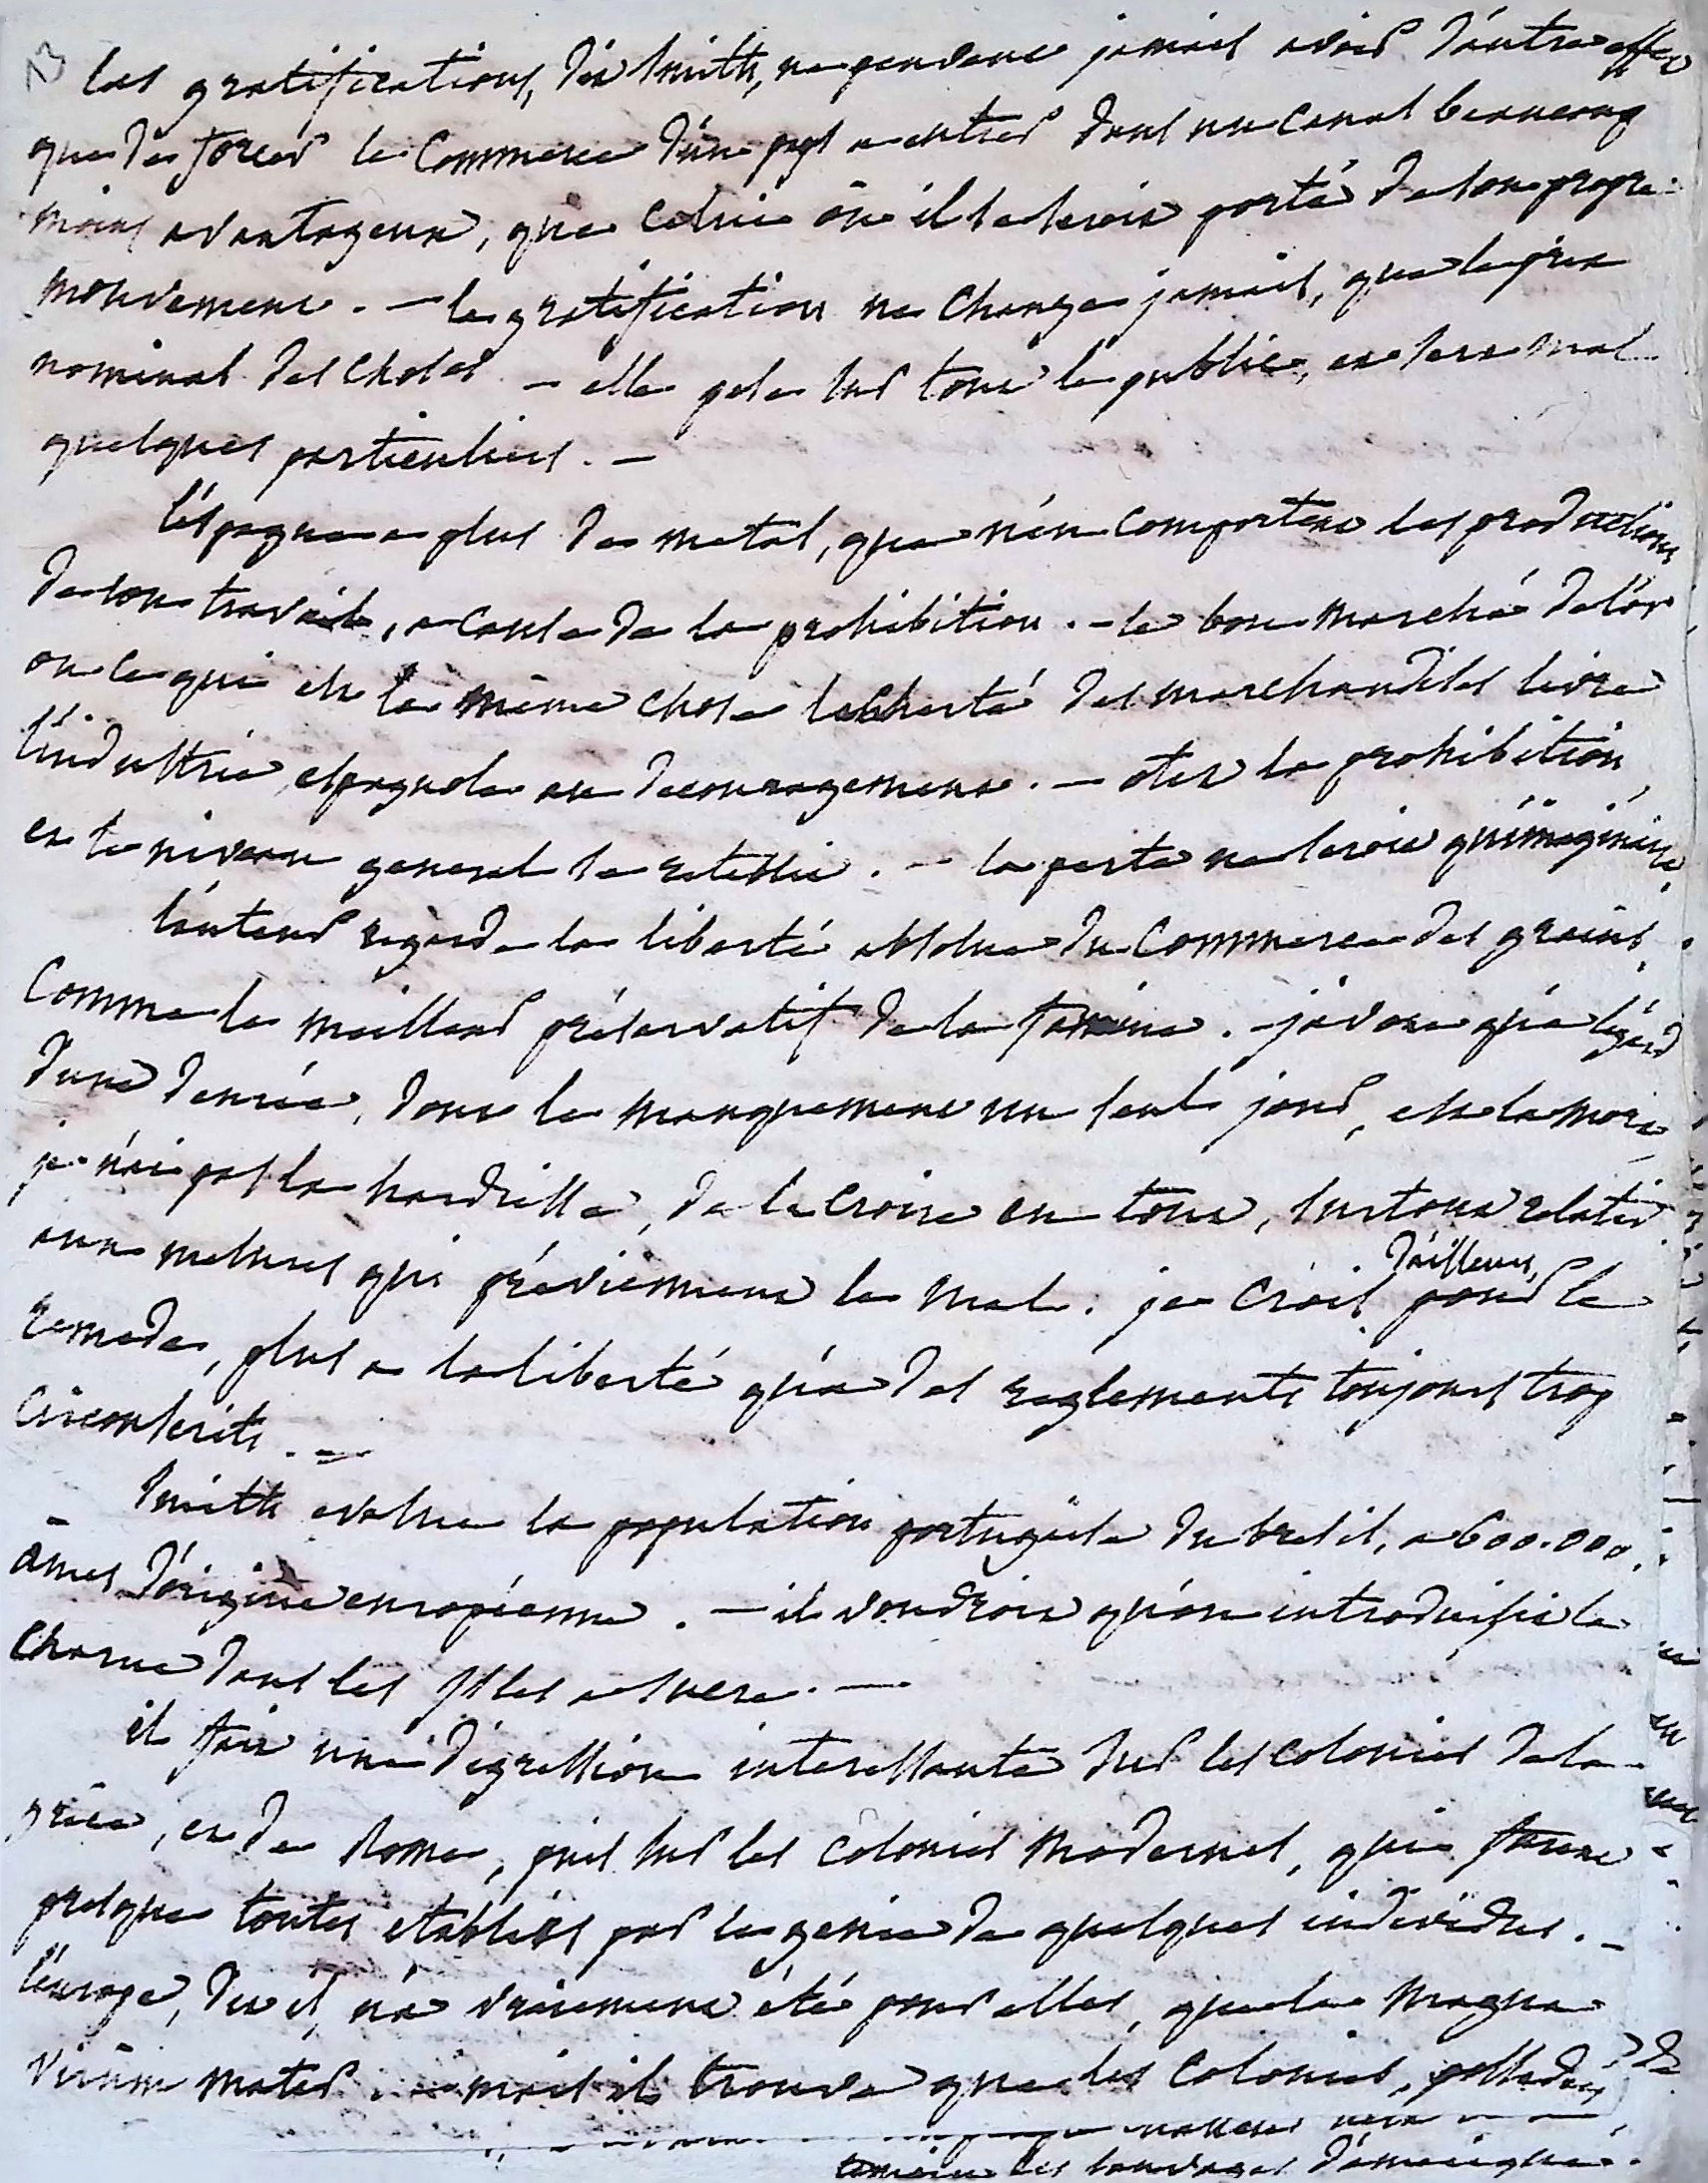 les gratifications, dit Smith, ne peuvent jamais avoir d'autre effet
que de forcer le commerce d'un pays a entrer dans un canal beaucoup
moins avantageux, que celui où il se seroit porté de son propre
mouvement. – la gratification ne change jamais, que le prix
nominal des choses – elle pese sur tout le public, et sert mal
quelques particuliers. –
l'éspagne a plus de metal, que n'en comportent les productions
de son travail, a cause de la prohibition. – le bon marché de l'or
ou ce qui est la même chose la cherté des marchandises livre
l'industrie espagnole au decouragement. – otez la prohibition,
et le niveau general se retablit. – la perte ne seroit qu'imaginaire.
l'auteur regarde la liberté absolue du commerce des grains,
comme le meilleur préservatif de la famine. – j'avoue qu'à l'égard
d'une denrée, dont le manquement un seul jour, est la mort
je n'ai pas la hardiesse, de le croire en tout, surtout relativ.
aux mesures qui préviennent le mal. je crois d'ailleurs, pour le
remede, plus a la liberté qu'a des reglements toujours trop
circonscrits. –
Smith evalue la population portugaise du bresil, a 600.000.
âmes d'origine européenne. – il voudroit qu'on introduisit la
charue dans les isles a sucre. –
il fait une digression interessante sur les colonies de la
grèce, et de Rome, puis sur les colonies modernes, qui furent
presque toutes etablies par le genie de quelques individus. –
l'europe, dit il, n'a vraiement été pour elles, que la magna
virûm mater mais il trouve que les colonies,
les sauvages d'amerique.